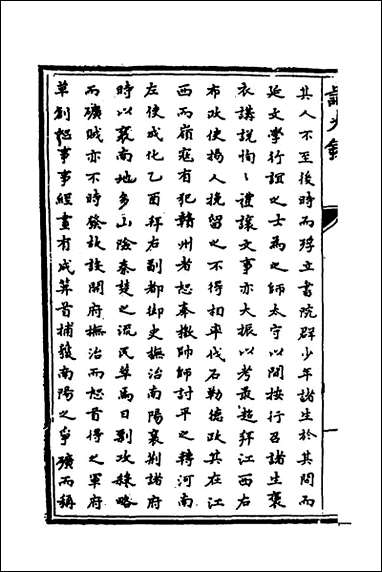 其人不至後時而殍立書院群少年諸生於其間而
延文學行誼之士為之師太守以間按行召諸生褒
衣講說恂〻禮讓文事亦大振以考最超拜江西右
布政使揚人挽留之不得相率伐石勒德政其在江
西而嶺寇有犯贛州者恕奉檄帥師討平之轉河南
左使成化乙酉拜右副都御史撫治南陽襄荆諸府
時以襄南地多山陰秦楚之流民萃焉日剽攻銇略
而礦賊亦不時發故設開府撫治而恕首得之軍府
草創恕事事經畫有成筭首捕發南陽之爭礦而稱